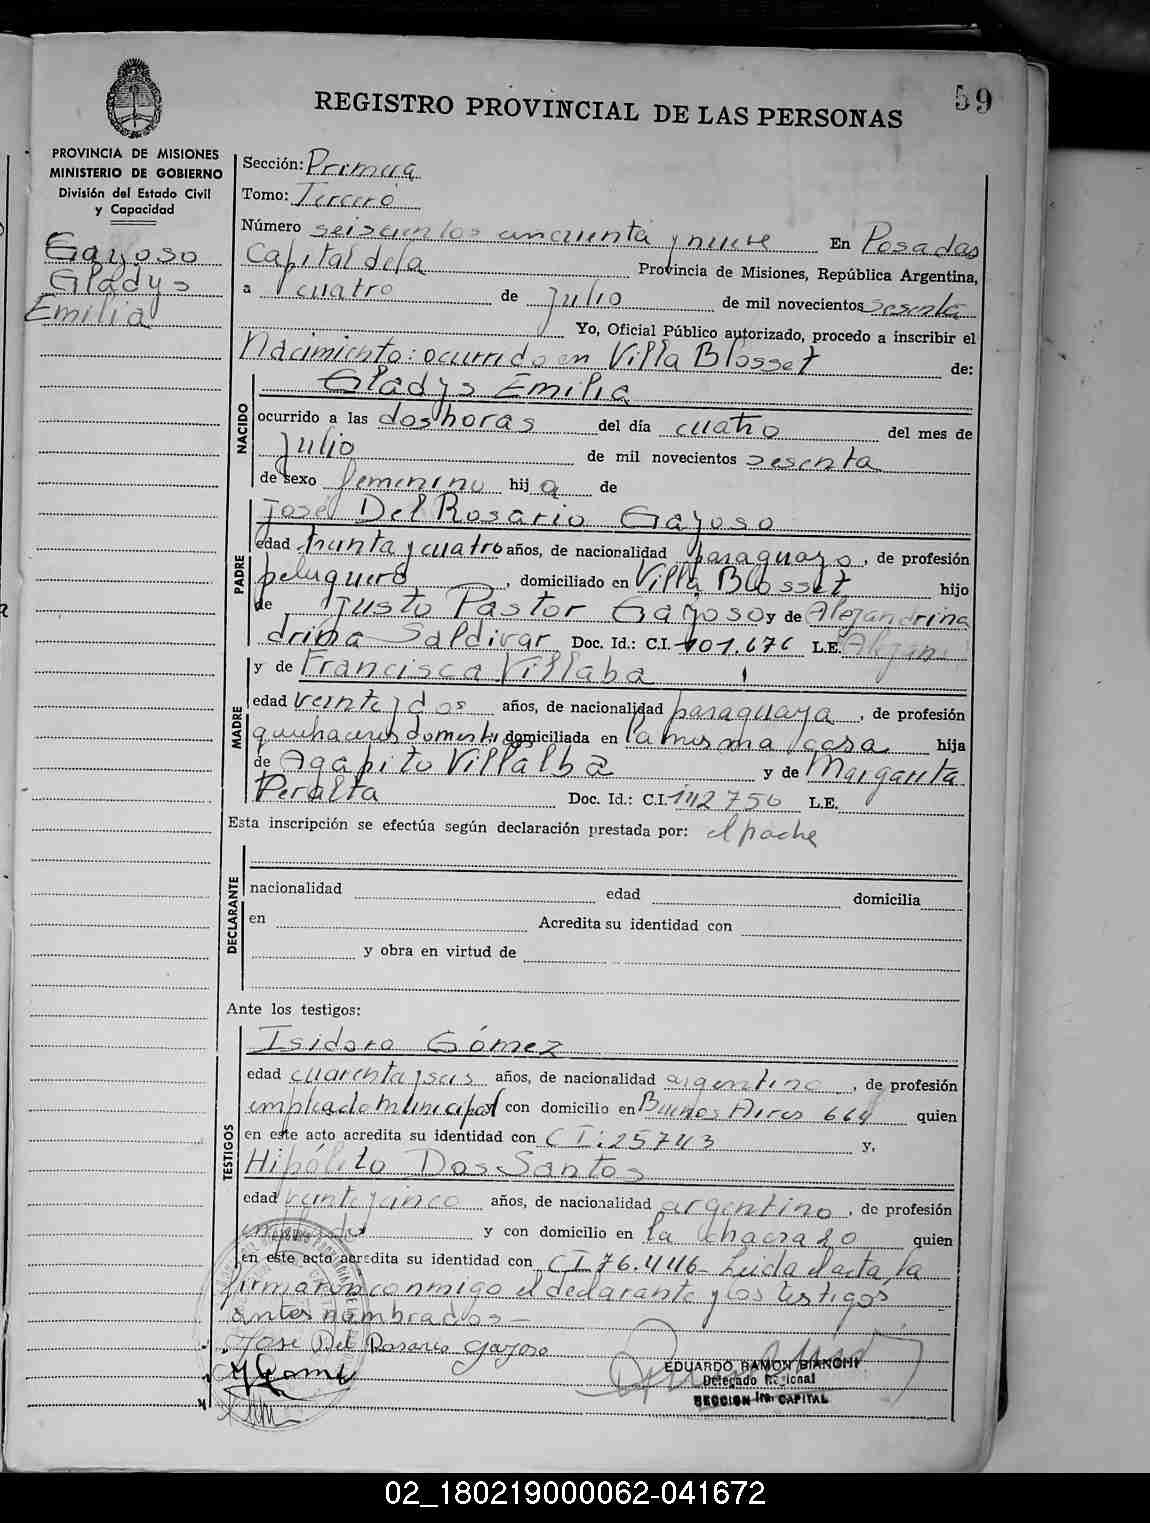 59
REGISTRO PROVINCIAL DE LAS PERSONAS
PROVINCIA DE MISIONES
MINISTERIO DE GOBIERNO
División del Estado Civil
y Capacidad
Gayoso
Gladys
Emilia
Sección: Primera
Tomo: Tercero
Número seiscientos cincuenta y nueve En Posadas
Capital de la Provincia de Misiones, República Argentina,
a cuatro de Julio de mil novecientos sesenta
Yo, Oficial Público autorizado, procedo a inscribir el
Nacimiento: ocurrido en Villa Blosset de:
NACIDO
Gladys Emilia
ocurrido a las dos horas del día cuatro del mes de
Julio de mil novecientos sesenta
de sexo femenino hij a de
PADRE
José Del Rosario Gayoso
edad treinta y cuatro años, de nacionalidad paraguayo, de profesión
peluquero, domiciliado en Villa Blosset hijo
de Justo Pastor Gayoso y de Alejandrina
drina Saldivar Doc. Id.: C.I. 101.676 L.E. Alejan
MADRE
y de Francisca Villaba
edad veinte y dos años, de nacionalidad paraguaya, de profesión
quehaceres domesti domiciliada en la misma casa hija
de Agapito Villalba y de Margarita
Peralta Doc. Id.: C.I. 142750 L.E.
Esta inscripción se efectúa según declaración prestada por: el padre
DECLARANTE
nacionalidad edad domicilia
en Acredita su identidad con
y obra en virtud de
Ante los testigos:
TESTIGOS
Isidoro Gómez
edad cuarenta y seis años, de nacionalidad argentino, de profesión
empleado municipal con domicilio en Buenos Aires 664 quien
en este acto acredita su identidad con C I: 25743 y,
Hipólito Dos Santos
edad veinte y cinco años, de nacionalidad argentino, de profesión
empleado y con domicilio en la chacra 20 quien
en este acto acredita su identidad con C I 76.446- Leida el acta, la
firmaron conmigo el declarante y los testigos
antes nombrados-
José Del Rosario Gayoso
EDUARDO RAMON BIANCHI
Delegado Regional
SECCION 1ra. CAPITAL
02_180219000062-041672